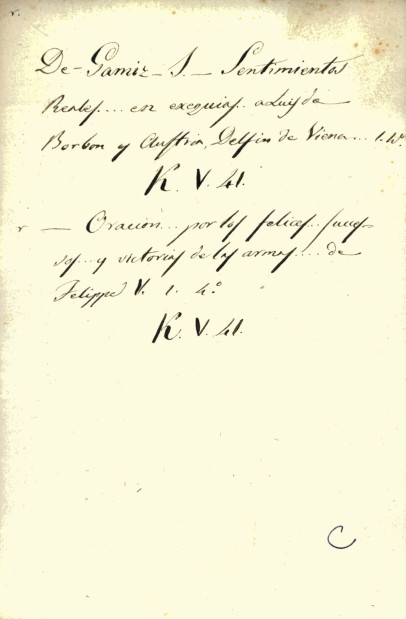 r.
De-Gamiz-S.- Sentimientos
Reales... en exequias a Luis de
Borbon y Austria, Delfin de Viena... 1. 4º.
K. V. 41.
r - Oracion... por los felices suce-
sos... y victorias de las armas.... de
Felippe V. 1. 4.º
K. V. 41.
C